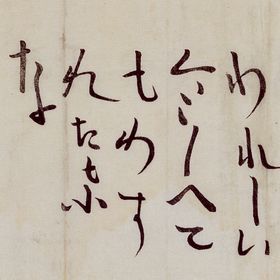 われしい
くとしへて
もわす
れたまふ
な